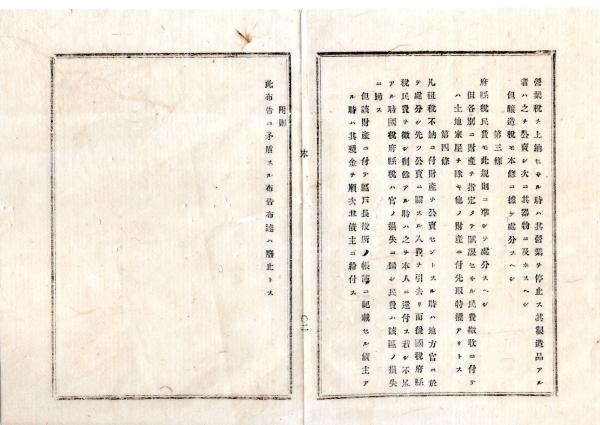 營業税ヲ上納セサル時ハ其營業ヲ停止ス其製造品アル
者ハ之ヲ公賣シ次ニ其器物ニ及ホスヘシ
但釀造税モ本條ニ據テ處分スヘシ
第三條
府縣税民費モ此規則ニ準シテ處分スヘシ
但各別ニ財産ヲ指定メテ賦課セサル民費徴收ニ付テ
ハ土地家屋ヲ除キ他ノ財産ニ付先取特權アリトス
第四條
凡租税不納ニ付財産ヲ公賣セントスル時ハ地方官ニ於
テ處分シ先ツ公賣ニ關スル入費ヲ引去リ而後國税府縣
税民費ヲ徴シ剩餘アル時ハ之ヲ本人ニ還付ス若シ不足
アル時國税府縣税ハ官ノ損失ニ歸シ民費ハ該區ノ損失
ニ歸ス
但該財産ニ付テ區戸長役所ノ帳簿ニ記載セル債主ア
ル時ハ其殘金ヲ順次其債主ニ給付ス
〇二
附則
此布告ニ矛盾スル布告布達ハ廢止トス